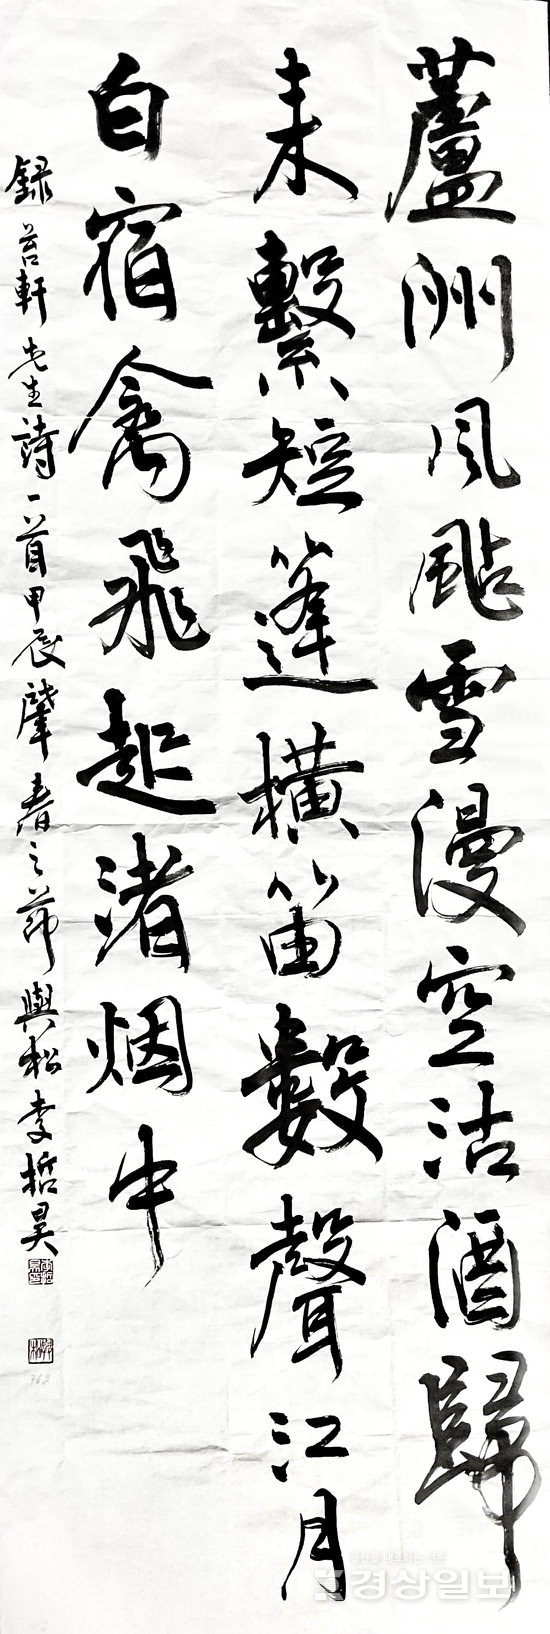 蘆洲風颭雪漫空沽酒歸
来繫短篷橫笛數聲江月
白宿禽飛起渚烟中
録苔軒先生詩一首甲辰肇春之節與松李哲昊
경상일보